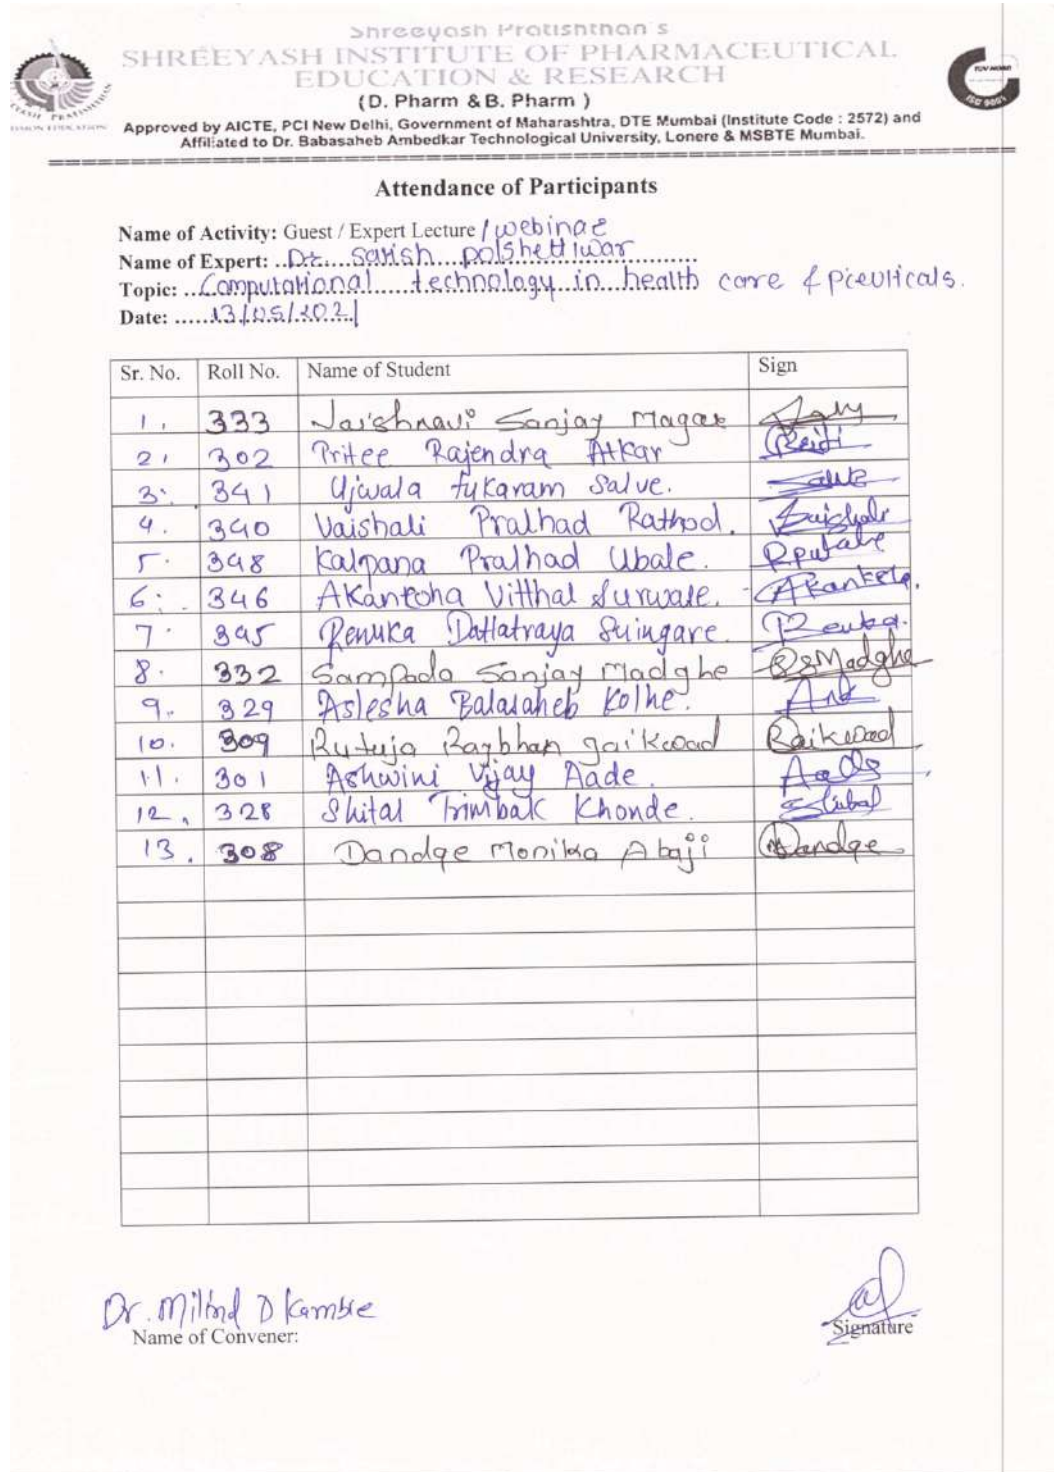 Shreeyash Pratishthan's
SHREEYASH INSTITUTE OF PHARMACEUTICAL
EDUCATION & RESEARCH
(D. Pharm & B. Pharm )
Approved by AICTE, PCI New Delhi, Government of Maharashtra, DTE Mumbai (Institute Code : 2572) and
Affiliated to Dr. Babasaheb Ambedkar Technological University, Lonere & MSBTE Mumbai.
TUV NORD
ISO 9001
Attendance of Participants
Name of Activity: Guest / Expert Lecture / webinar
Name of Expert: ..Dr.... Satish polshettiwar
Topic: ..Computational technology in health care &
Date: ......13/05/2021
Sr. No. Roll No. Name of Student Sign
1. 333 Vaishnavi Sanjay Magar
2. 302 Pritee Rajendra Atkar
3. 341 Ujwala tukaram Salve. Salve
4. 340 Vaishali Pralhad Rathod. Vaishali
5. 348 Kalpana Pralhad Ubale.
6. 346 Akanksha Vitthal Surwase.
7. 345 Renuka Dattatraya Shingare. Renuka.
8. 332 Sampada Sanjay Madghe SSMadghe
9. 329 Aslesha Balasaheb Kolhe.
10. 309 Rutuja Ragbhan gaikwad Gaikwad
11. 301 Ashwini Vijay Aade. Aade
12. 328 Shital Trimbak Khonde. Shital
13. 308 Dandge Monika Abaji Dandge
Dr. Milind D Kamble
Name of Convener: Signature